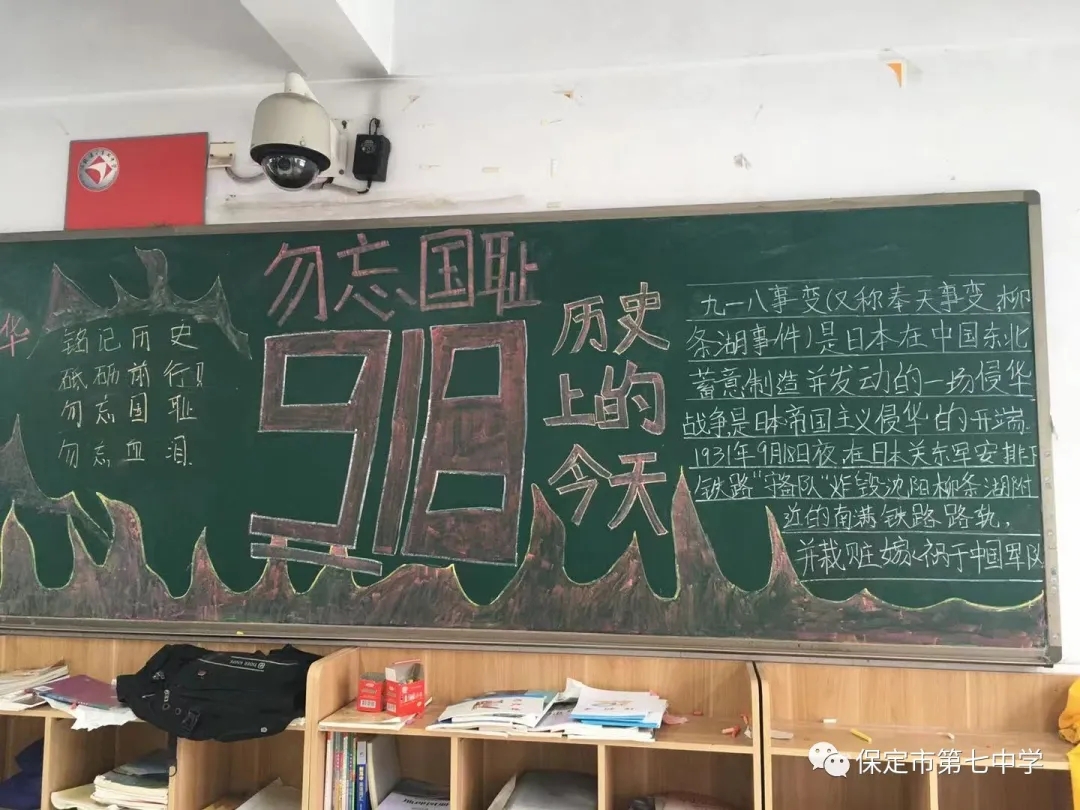 华
铭记历史
砥砺前行!
勿忘国耻
勿忘血泪
勿忘国耻
918
历史
上的
今天
九一八事变(又称奉天事变、柳
条湖事件)是日本在中国东北
蓄意制造并发动的一场侵华
战争是日本帝国主义侵华的开端.
1931年9月18日夜,在日本关东军安排下
铁路"守备队"炸毁沈阳柳条湖附
近的南满铁路路轨,
并栽赃嫁祸于中国军队
保定市第七中学